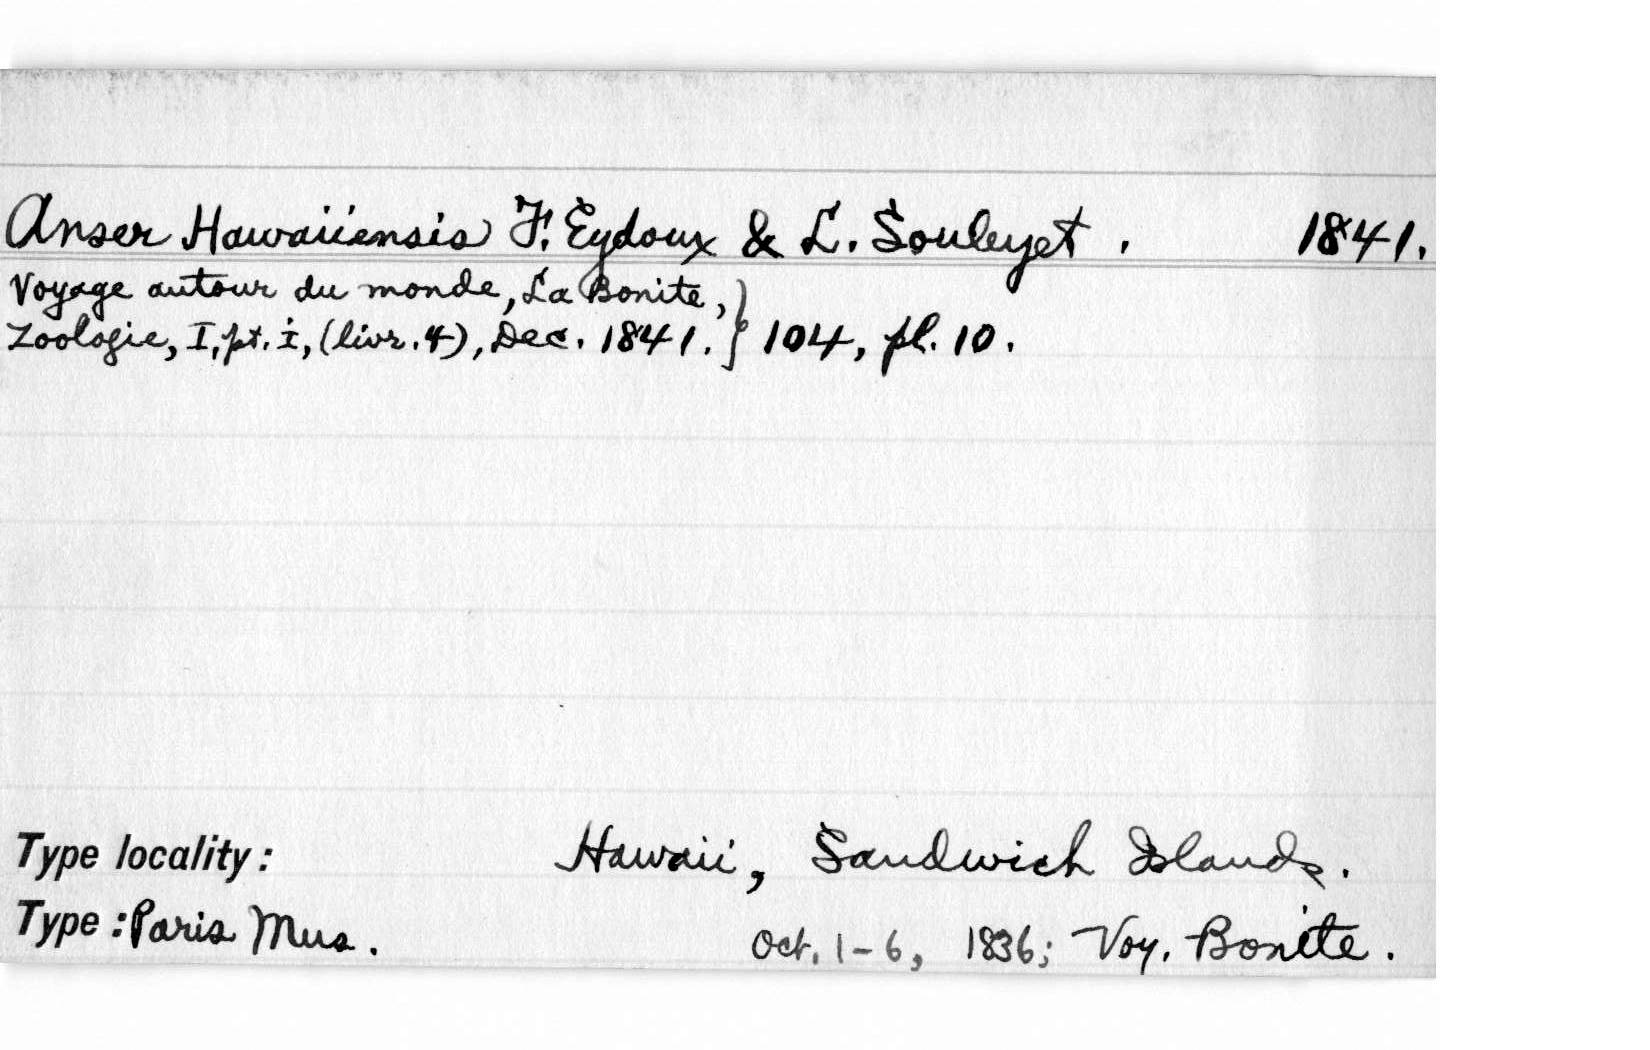 Anser Hawaiiensis F. Eydoux & L. Souleyet. 1841.
Voyage autour du monde, La Bonite,
Zoologie, I, pt. i, (livr. 4), Dec. 1841. } 104, pl. 10.
Type locality: Hawaii, Sandwich Islands.
Type: Paris Mus. Oct. 1-6, 1836; Voy. Bonite.